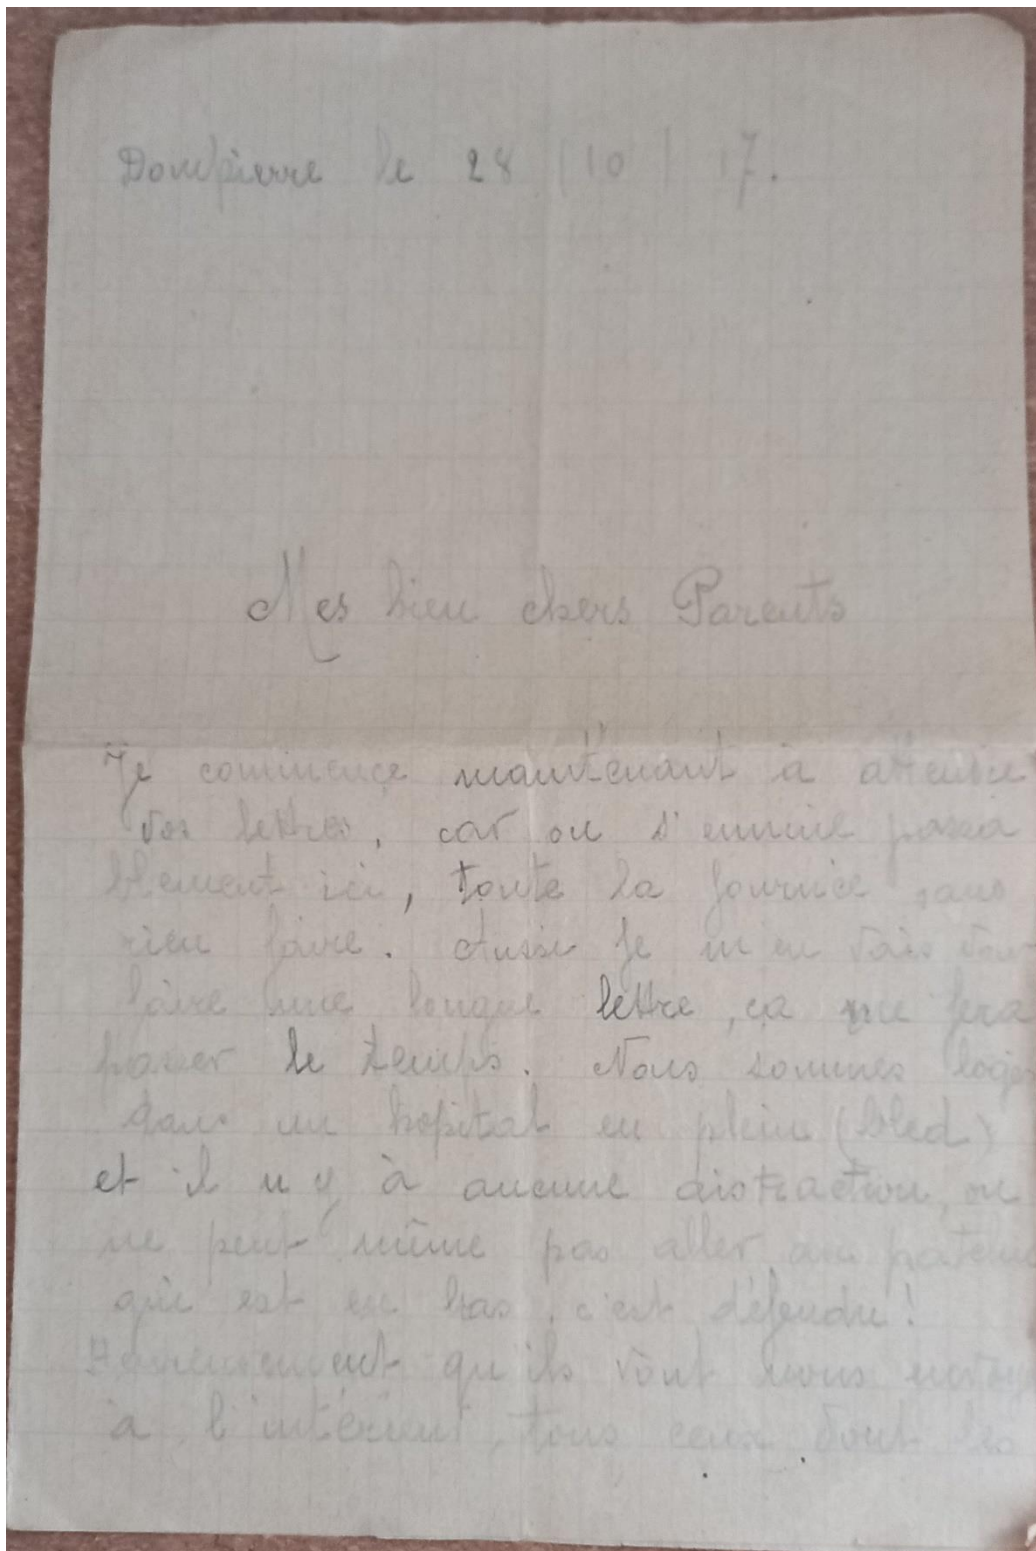 Dompierre le 28 / 10 / 17.
Mes bien chers Parents
Je commence maintenant à attendre
vos lettres, car on s'ennuie passa
blement ici, toute la journée sans
rien faire. Aussi je m'en vais vous
faire une longue lettre, ça me fera
passer le temps. Nous sommes logés
dans un hopital en plein (bled)
et il n'y à aucune distraction, on
ne peut même pas aller au patelin
qui est en bas, c'est défendu!
Heureusement qu'ils vont nous envoyer
à l'intérieur, tous ceux dont les